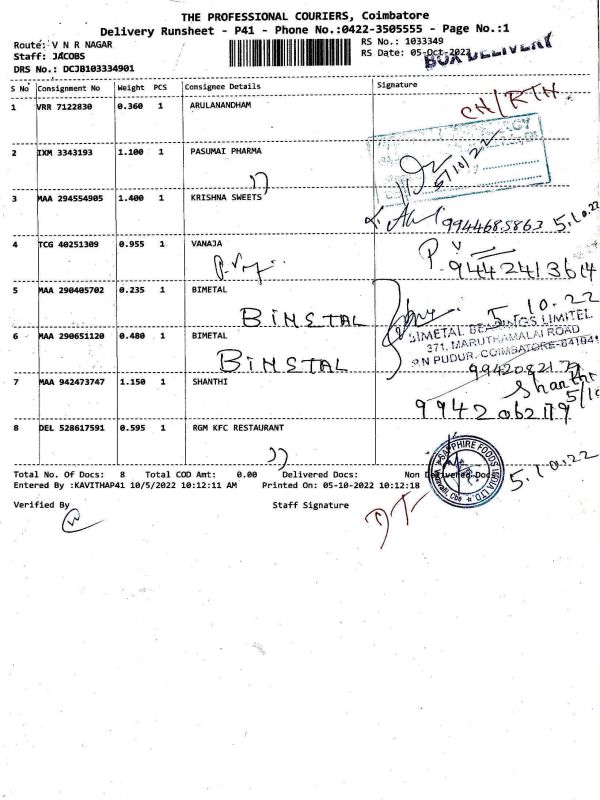 THE PROFESSIONAL COURIERS, Coimbatore
Delivery Runsheet - P41 - Phone No.:0422-3505555 - Page No.:1
Route: V N R NAGAR
RS No.: 1033349
Staff: JACOBS
RS Date: 05-Oct-2022
BOX DELIVERY
DRS No.: DCJB103334901
S No Consignment No Weight PCS Consignee Details Signature
CH/RTH
1 VRR 7122830 0.360 1 ARULANANDHAM
2 IXM 3343193 1.100 1 PASUMAI PHARMA
5/10/22
3 MAA 294554905 1.400 1 KRISHNA SWEETS
9944685863 5.10.22
4 TCG 40251309 0.955 1 VANAJA
P. V
9442413614
5 MAA 290405702 0.235 1 BIMETAL
BIMETAL
5.10.22
BIMETAL BEARINGS LIMITED
371, MARUTHAMALAI ROAD
P.N PUDUR, COIMBATORE-641041
6 MAA 290651120 0.480 1 BIMETAL
BIMETAL
7 MAA 942473747 1.150 1 SHANTHI
Shanthi
5/10
9942062179
8 DEL 528617591 0.595 1 RGM KFC RESTAURANT
SAPPHIRE FOODS INDIA LTD
5.10.22
Total No. Of Docs: 8 Total COD Amt: 0.00 Delivered Docs: Non Delivered Docs
Entered By :KAVITHAP41 10/5/2022 10:12:11 AM Printed On: 05-10-2022 10:12:18
Verified By Staff Signature